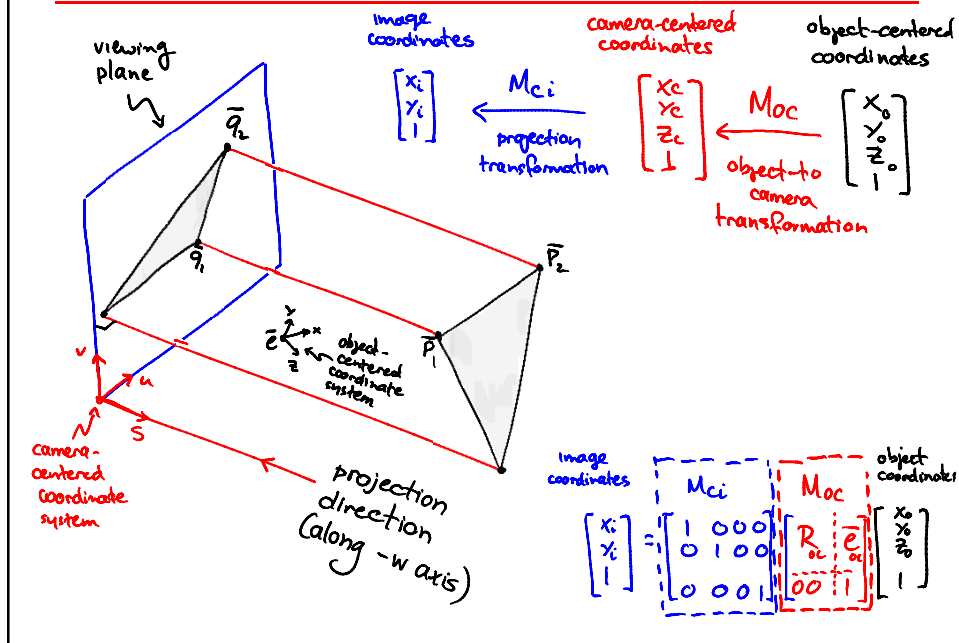 viewing
plane
image
coordinates
[xi yi 1]
Mci
projection
transformation
camera-centered
coordinates
[xc yc zc 1]
Moc
object-to
camera
transformation
object-centered
coordinates
[xo yo zo 1]
q̄2
q̄1
p̄2
p̄1
ē
y
x
z
object-
centered
coordinate
system
v
u
s
camera-
centered
coordinate
system
projection
direction
(along -w axis)
image
coordinates
Mci
Moc
object
coordinates
[xi yi 1] = [1 0 0 0
0 1 0 0
0 0 0 1] [Roc ēoc
0 0 1] [xo yo zo 1]